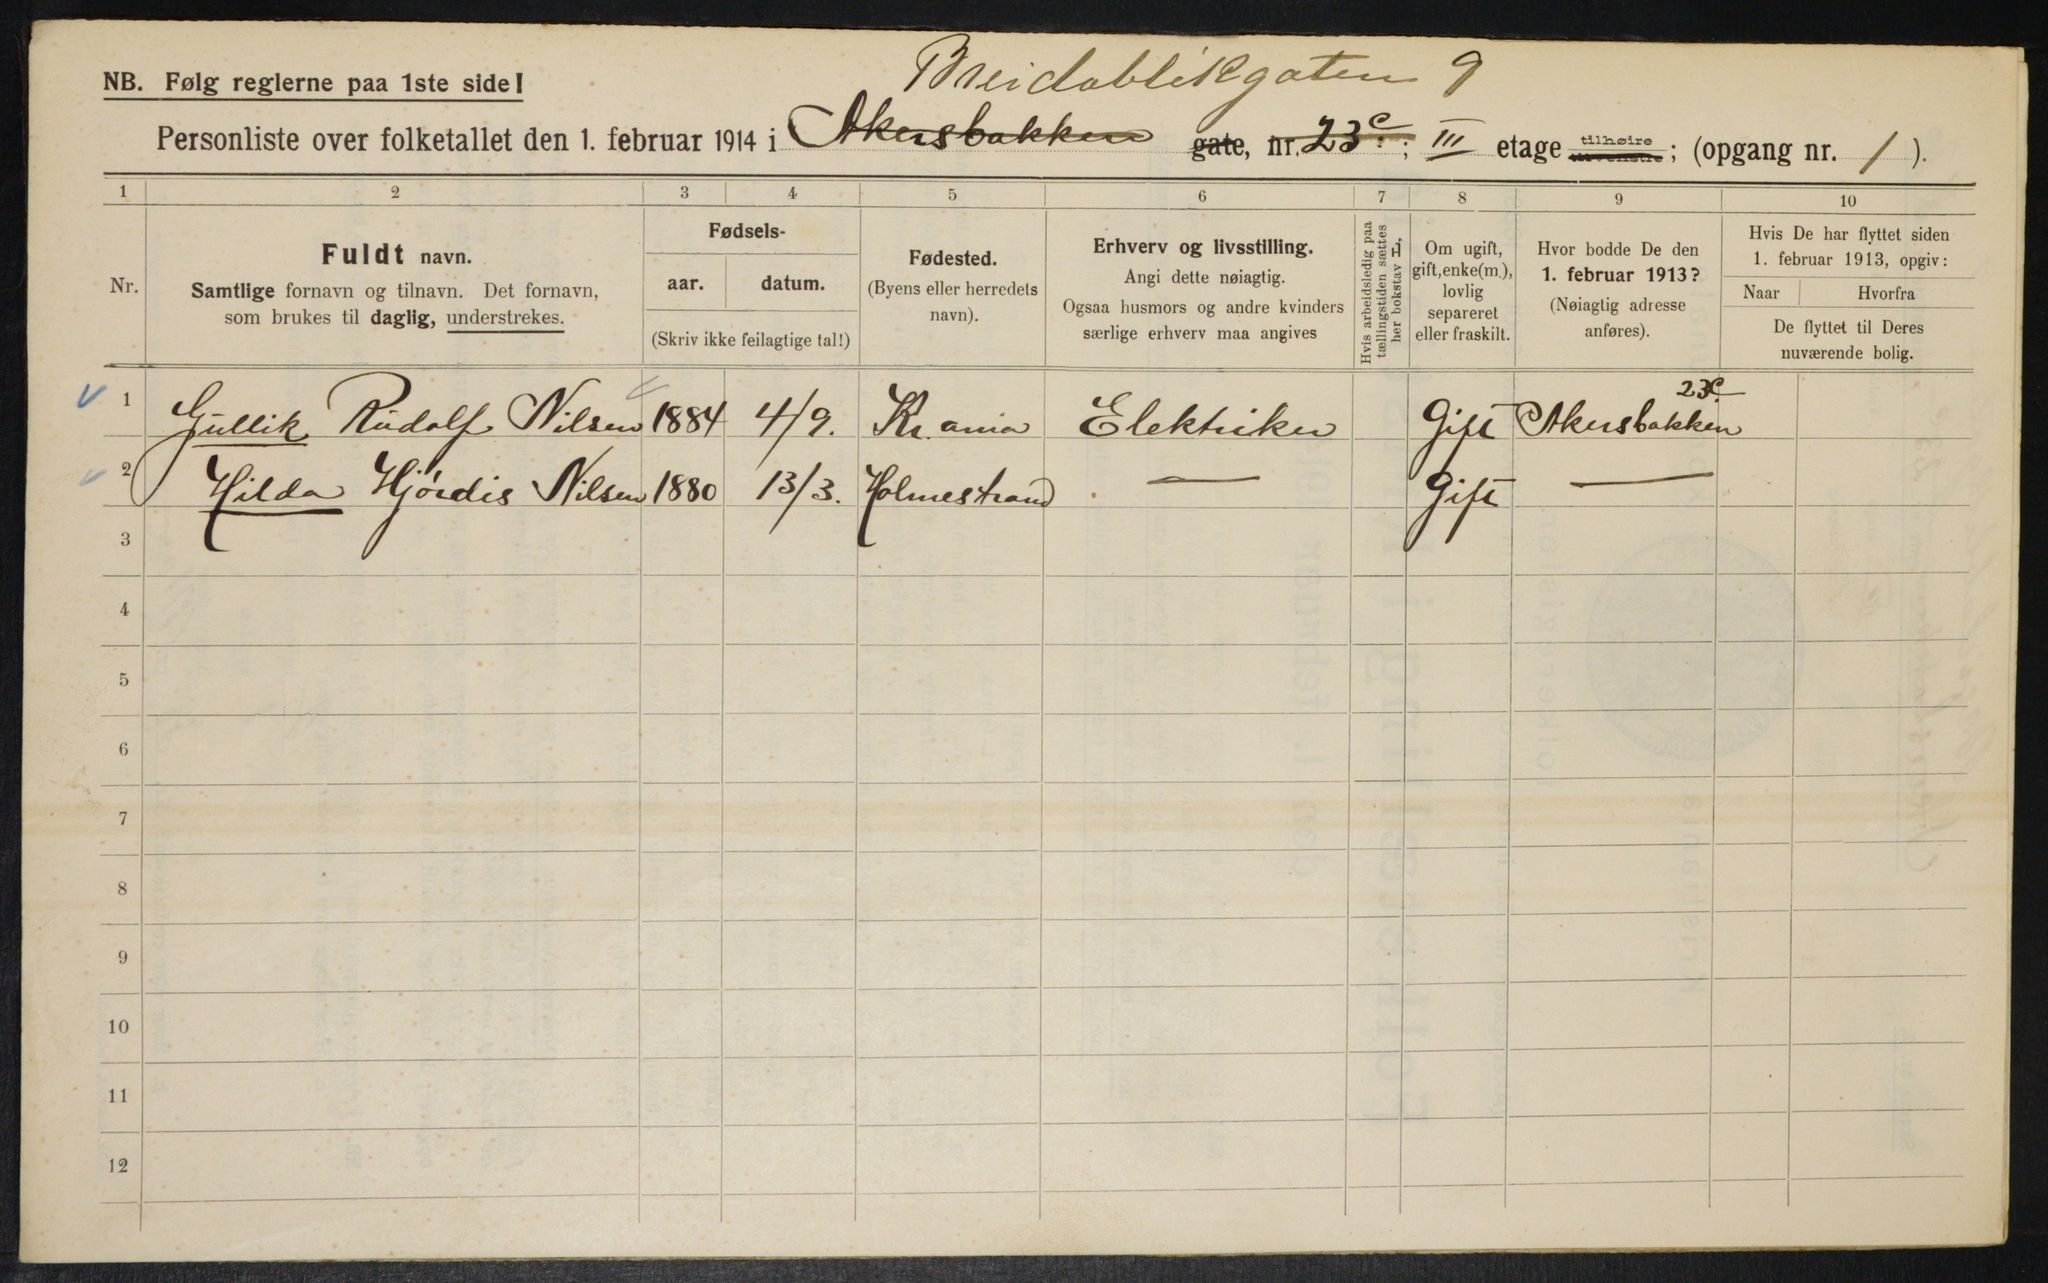 Breidablikgaten 9
NB. Følg reglerne paa 1ste side!
Personliste over folketallet den 1. februar 1914 i Akersbakken gate, nr. 23c.; III etage tilhøire; (opgang nr. 1).
1 2 3 4 5 6 7 8 9 10
Nr.
Fuldt navn.
Samtlige fornavn og tilnavn. Det fornavn,
som brukes til daglig, understrekes.
Fødsels-
aar. datum.
(Skriv ikke feilagtige tal!)
Fødested.
(Byens eller herredets
navn).
Erhverv og livsstilling.
Angi dette nøiagtig.
Ogsaa husmors og andre kvinders
særlige erhverv maa angives
Hvis arbeidsledig paa
tællingstiden sættes
her bokstav L.
Om ugift,
gift, enke(m.),
lovlig
separeret
eller fraskilt.
Hvor bodde De den
1. februar 1913?
(Nøiagtig adresse
anføres).
Hvis De har flyttet siden
1. februar 1913, opgiv:
Naar Hvorfra
De flyttet til Deres
nuværende bolig.
1 Gullik Rudolf Nilsen 1884 4/9. Kr.ania Elektriker Gift Akersbakken 23c.
2 Hilda Hjørdis Nilsen 1880 13/3. Holmestrand — Gift —
3
4
5
6
7
8
9
10
11
12